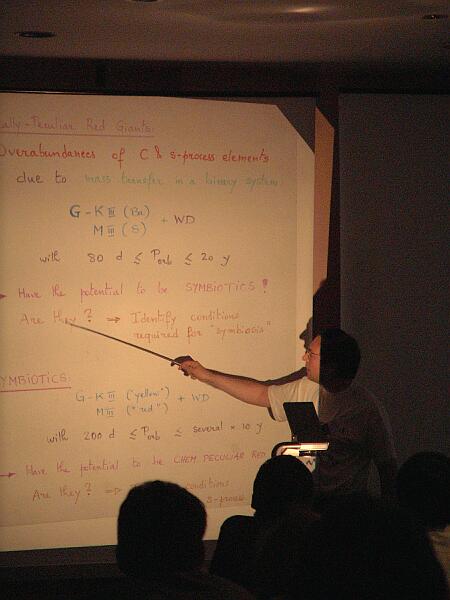 ally-Peculiar Red Giants:
Overabundances of C & s-process elements
due to mass transfer in a binary system
G - K III (Ba) + WD
M III (S)
with 80 d ≤ Porb ≤ 20 y
→ Have the potential to be SYMBIOTICS !
Are they ? ⇒ Identify conditions
required for "symbiosis"
YMBIOTICS:
G - K III ("yellow") + WD
M III ("red")
with 200 d ≤ Porb ≤ several × 10 y
→ Have the potential to be CHEM. PECULIAR RED
Are they ? ⇒ conditions
s-process